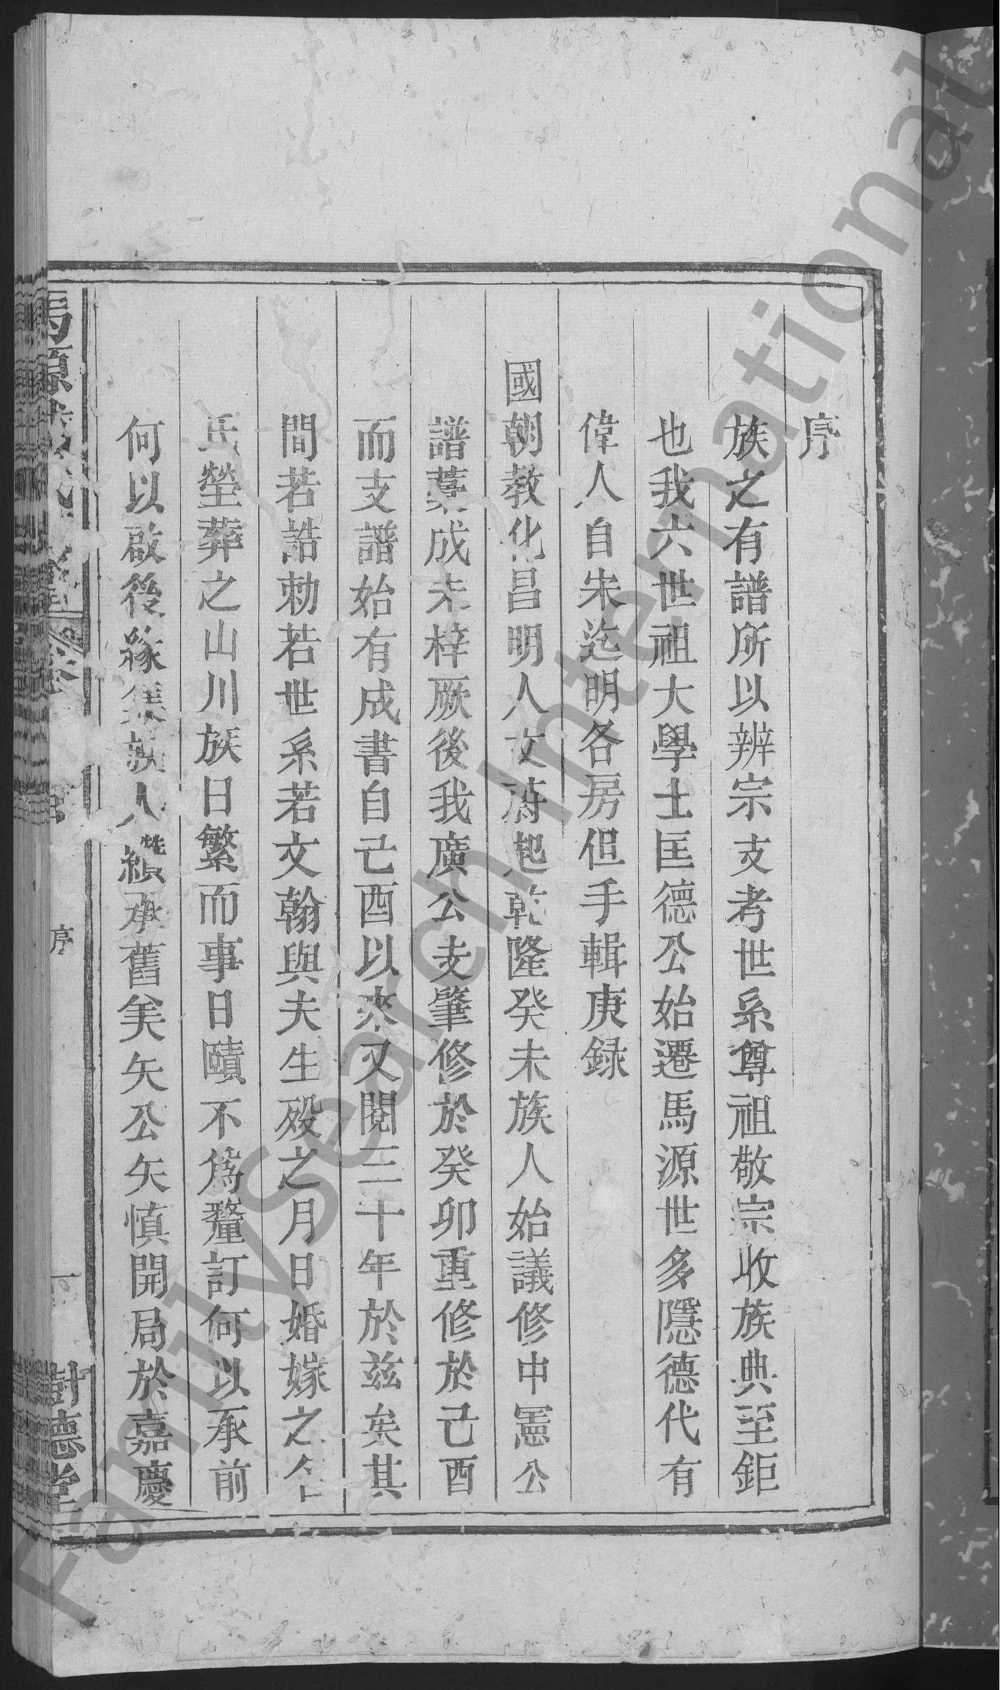 序
族之有譜所以辨宗支考世系尊祖敬宗收族典至鉅
也我六世祖大學士匡德公始遷馬源世多隱德代有
偉人自朱迄明各房但手輯庚録
國朝教化昌明人文蔚起乾隆癸未族人始議修中憲公
譜藁成未梓厥後我廣公支肇修於癸卯重修於己酉
而支譜始有成書自己酉以來又閱三十年於兹矣其
間若誥勅若世系若文翰與夫生殁之月日婚嫁之
氏塋葬之山川族日繁而事日賾不爲釐訂何以承前
何以啟後緣集族人續承舊矣矢公矢慎開局於嘉慶
馬源
序
一
樹德堂
FamilySearch International